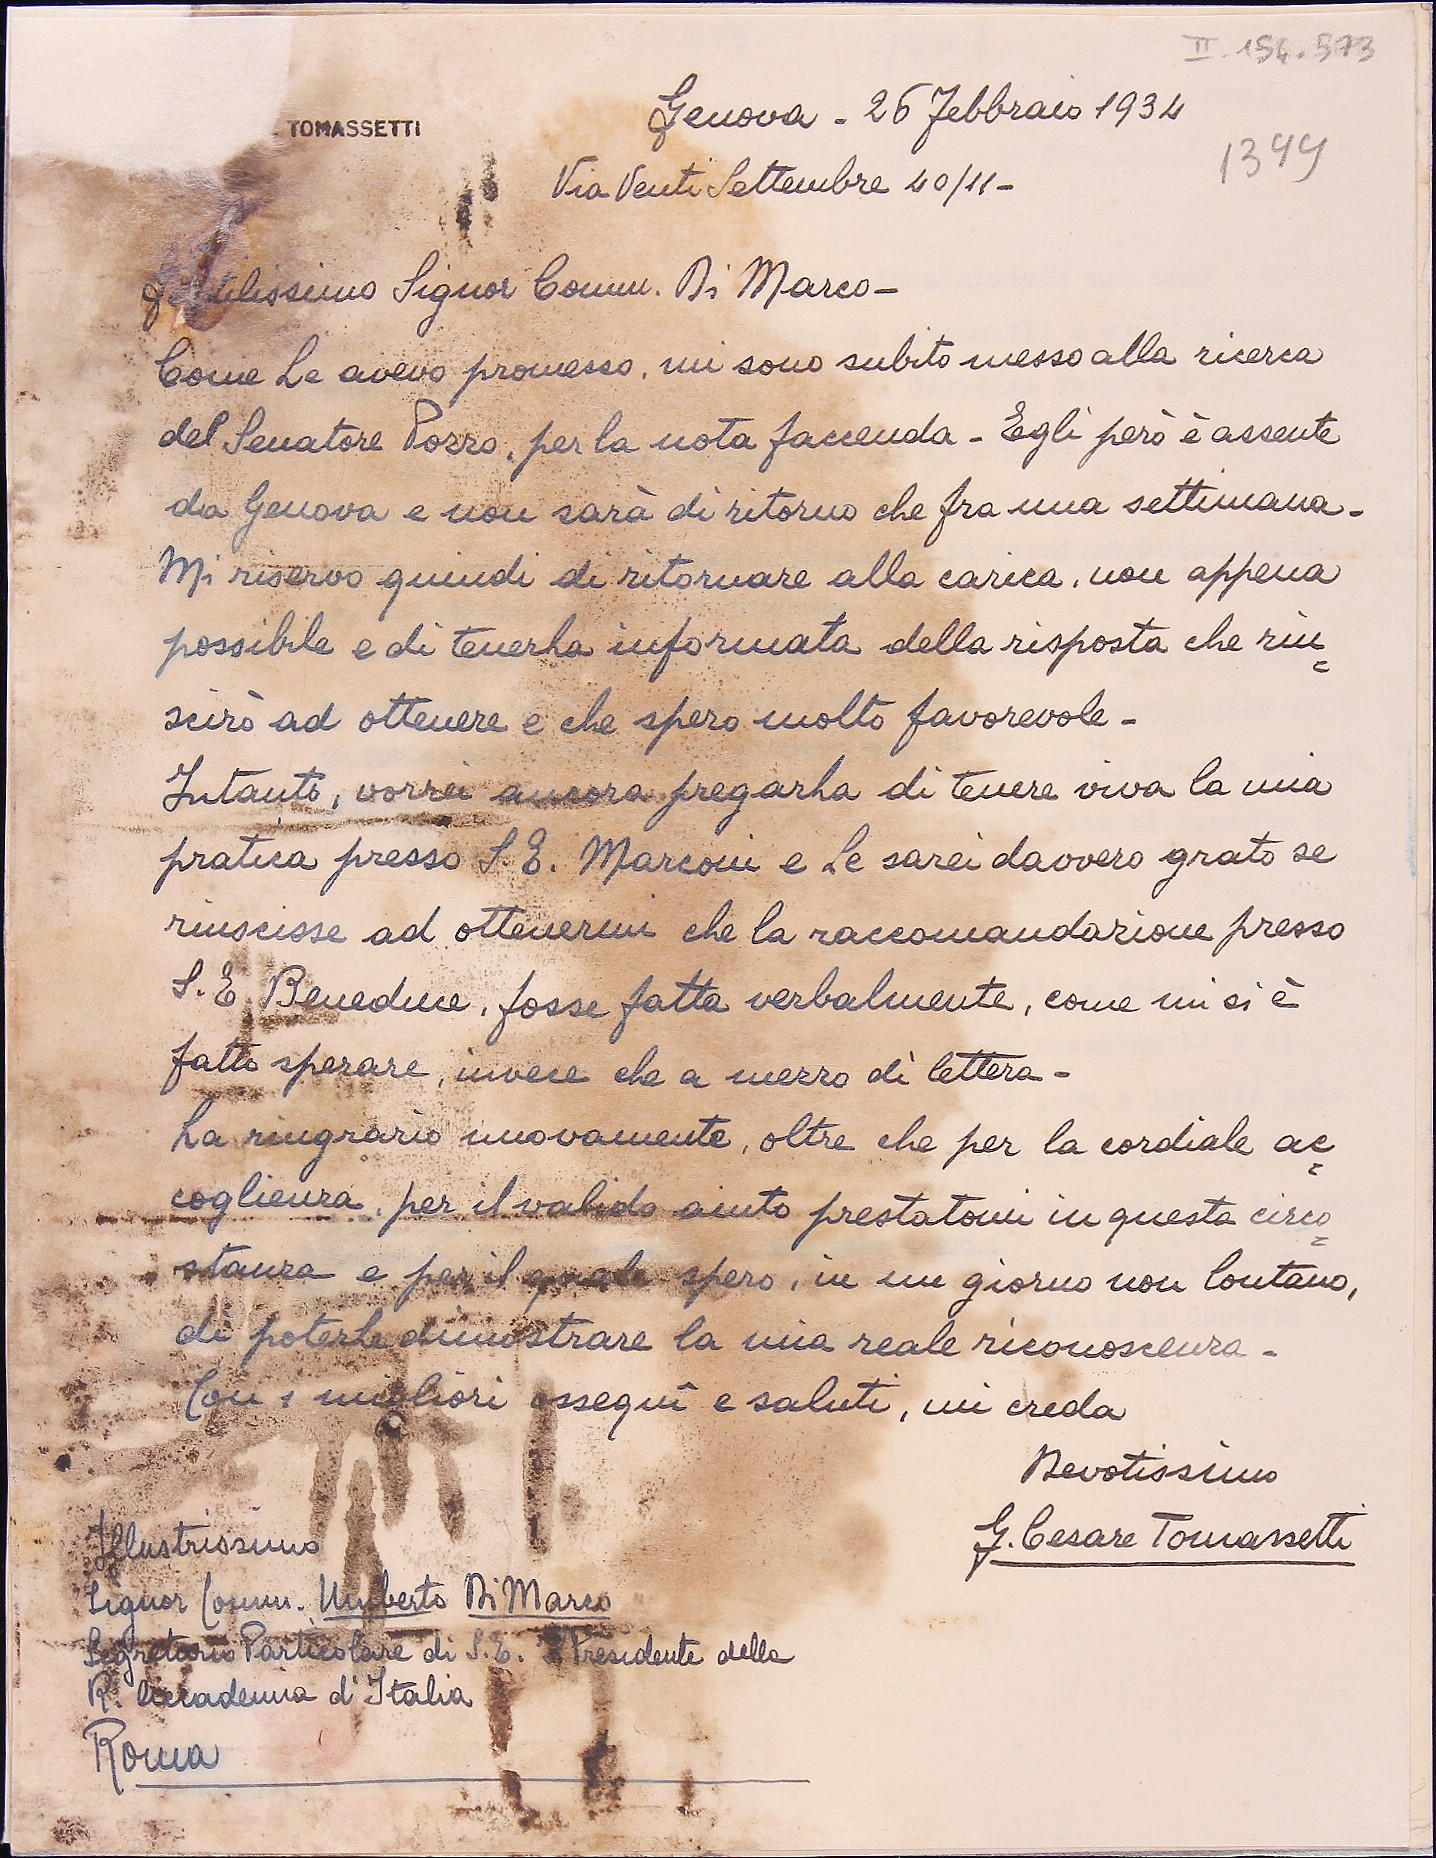 II. 154.573
TOMASSETTI
Genova - 26 Febbraio 1934
1344
Via Venti Settembre 40/11-
Gentilissimo Signor Comm. Di Marco-
Come Le avevo promesso, mi sono subito messo alla ricerca
del Senatore Pozzo, per la nota faccenda - Egli però è assente
da Genova e non sarà di ritorno che fra una settimana-
Mi riservo quindi di ritornare alla carica, non appena
possibile e di tenerLa informata della risposta che riu=
scirò ad ottenere e che spero molto favorevole-
Intanto, vorrei ancora pregarLa di tenere viva la mia
pratica presso S.E. Marconi e Le sarei davvero grato se
riuscisse ad ottenermi che la raccomandazione presso
S.E. Beneduce, fosse fatta verbalmente, come mi si è
fatto sperare, invece che a mezzo di lettera-
La ringrazio nuovamente, oltre che per la cordiale ac=
coglienza, per il valido aiuto prestatomi in questa circo=
stanza e per il quale spero, in un giorno non lontano,
di poterLe dimostrare la mia reale riconoscenza-
Con i migliori ossequi e saluti, mi creda
Devotissimo
G. Cesare Tomassetti
Illustrissimo
Signor Comm. Umberto Di Marco
Segretario Particolare di S.E. Presidente della
R. Accademia d'Italia
Roma